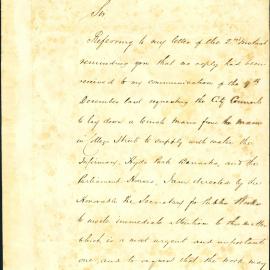 Sir
Referring to my letter of the 2nd Instant
reminding you that no reply had been
received to my communication of the 9th
December last requesting the City Council
to lay down a branch main from the main
in College Street to supply with water the
Infirmary, Hyde Park Barracks, and the
Parliament Houses, I am directed by the
Honorable the Secretary for Public Works
to invite immediate attention to this matter
which is a most urgent and important
one and to request that the work may